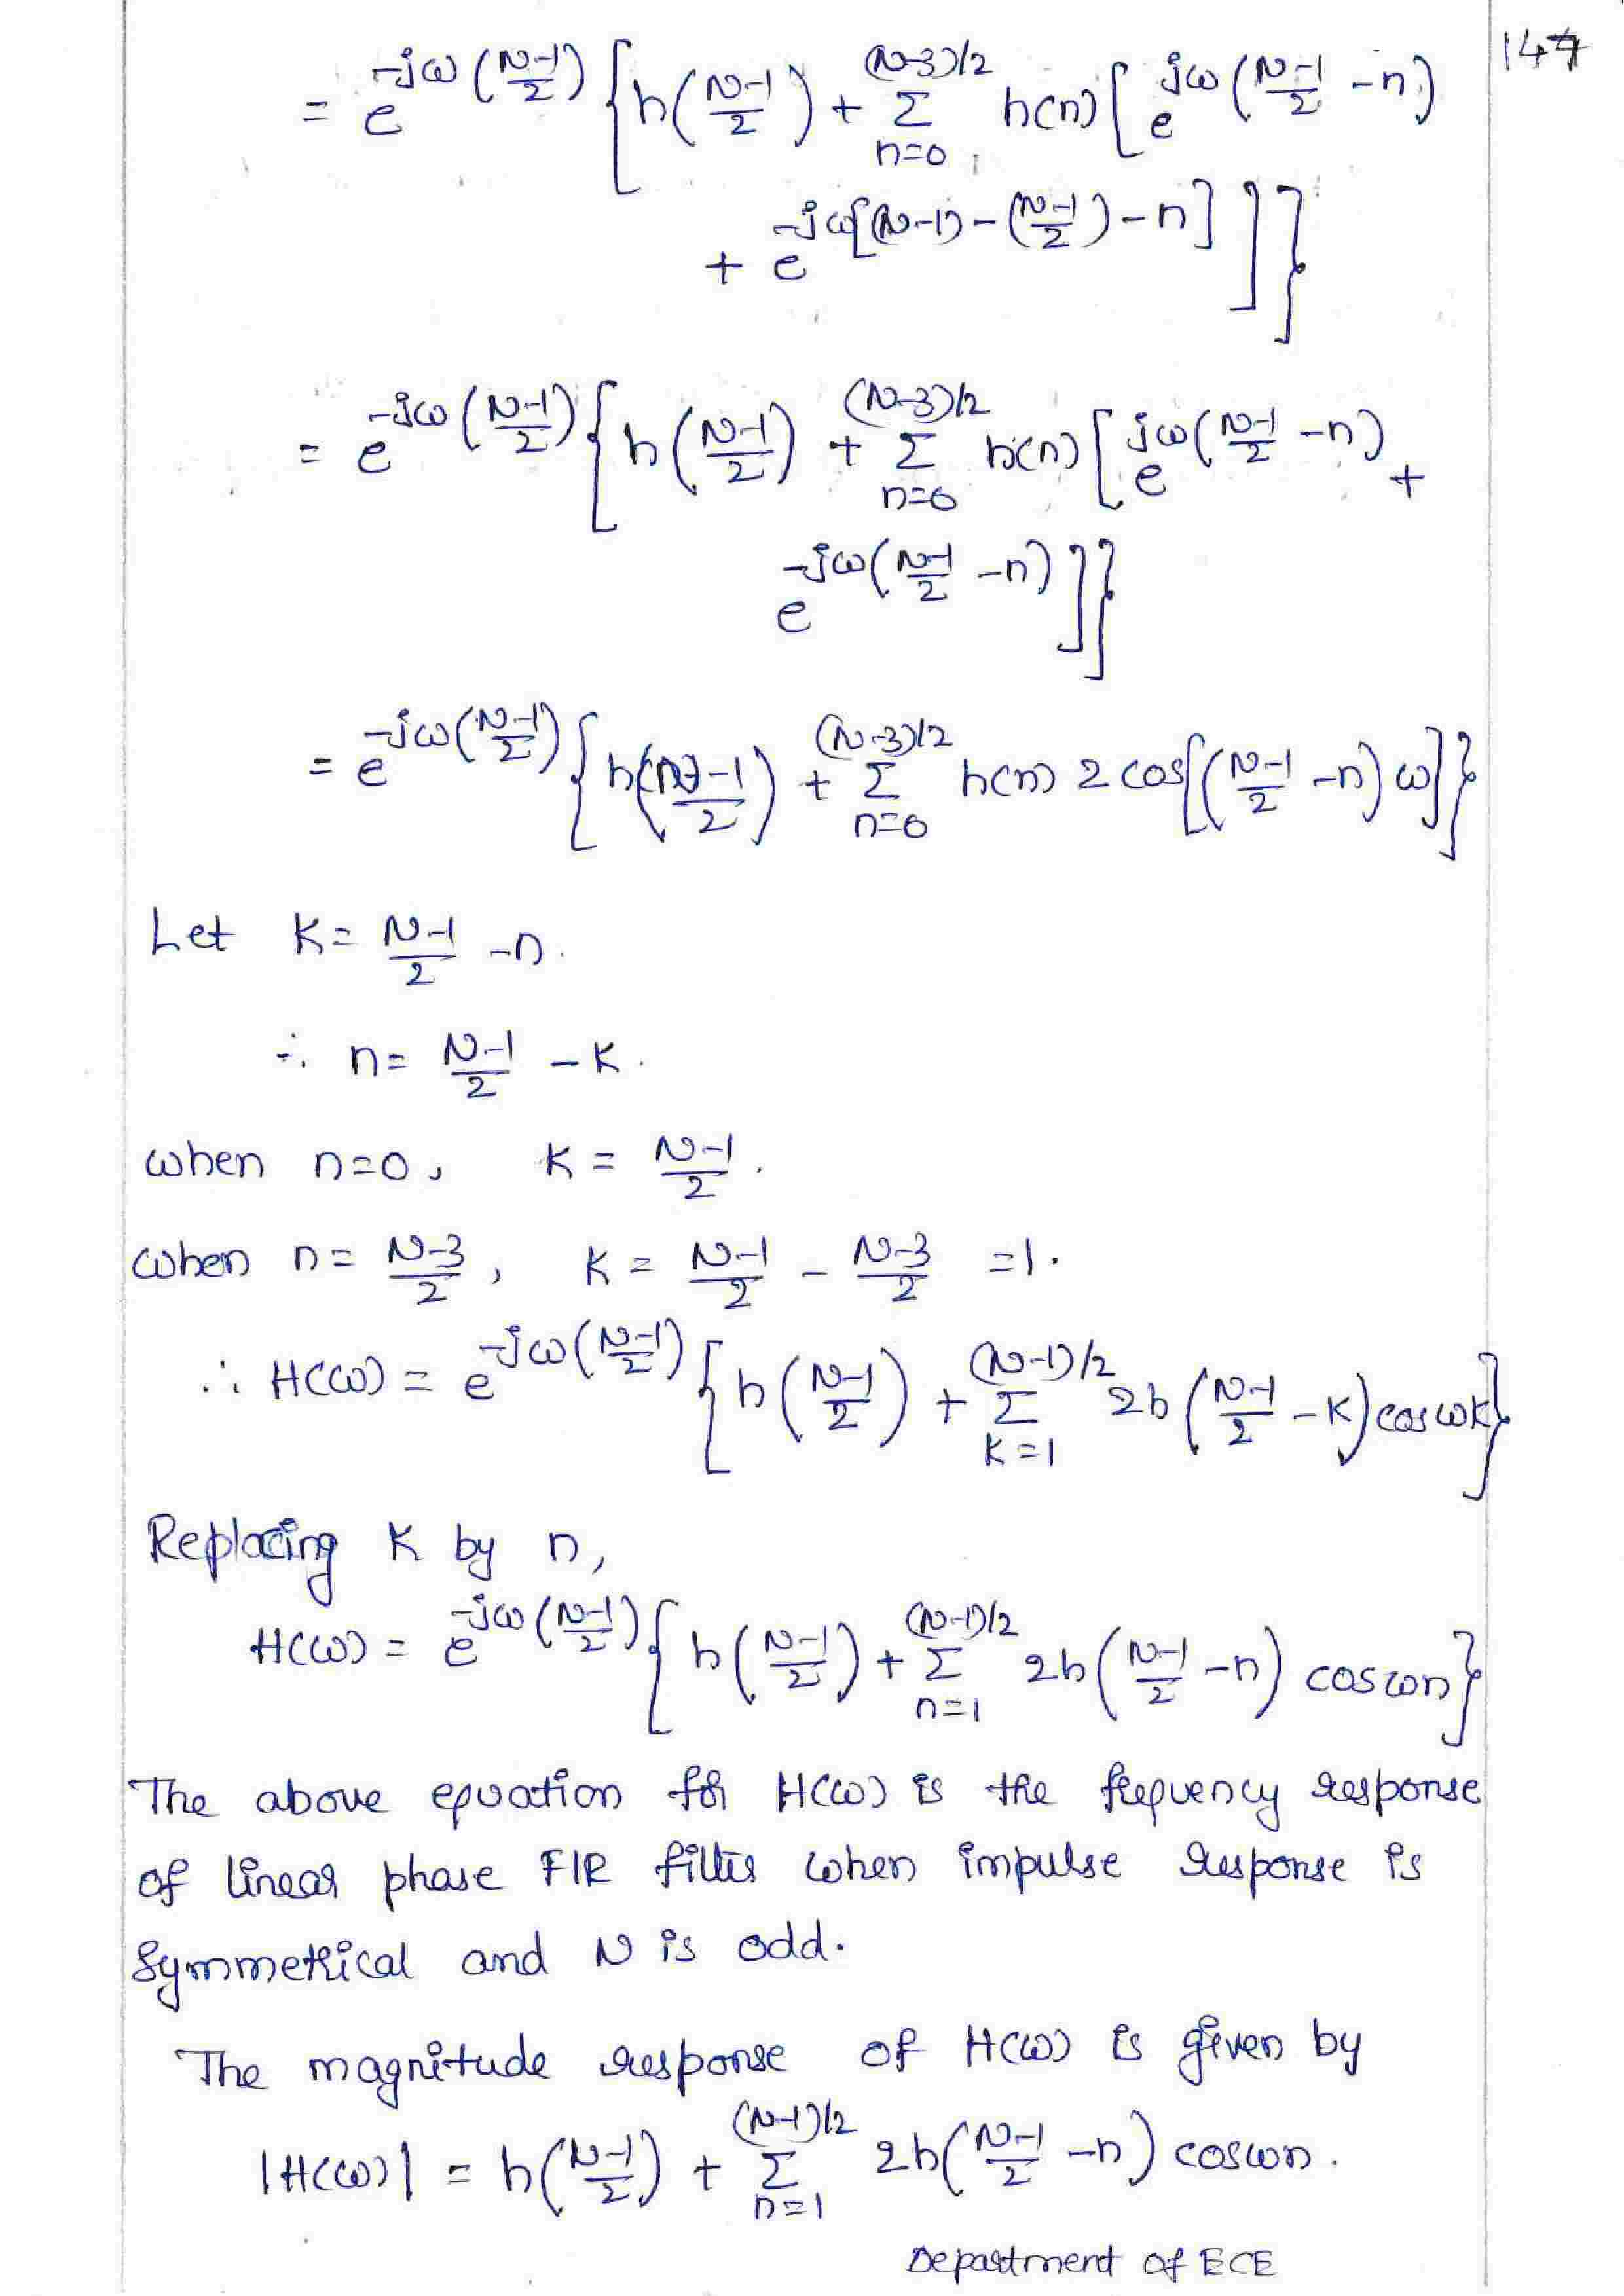 147
= e^{-jω(\frac{N-1}{2})} { h(\frac{N-1}{2}) + \sum_{n=0}^{(N-3)/2} h(n) [ e^{jω(\frac{N-1}{2} -n)}
+ e^{-jω[(N-1)-(\frac{N-1}{2})-n]} ] }
= e^{-jω(\frac{N-1}{2})} { h(\frac{N-1}{2}) + \sum_{n=0}^{(N-3)/2} h(n) [ e^{jω(\frac{N-1}{2} -n)} +
e^{-jω(\frac{N-1}{2} -n)} ] }
= e^{-jω(\frac{N-1}{2})} { h(\frac{N-1}{2}) + \sum_{n=0}^{(N-3)/2} h(n) 2 cos[(\frac{N-1}{2} -n) ω] }
Let K = \frac{N-1}{2} -n.
∴ n = \frac{N-1}{2} - K.
when n=0, K = \frac{N-1}{2}.
when n = \frac{N-3}{2}, K = \frac{N-1}{2} - \frac{N-3}{2} = 1.
∴ H(ω) = e^{-jω(\frac{N-1}{2})} { h(\frac{N-1}{2}) + \sum_{K=1}^{(N-1)/2} 2h(\frac{N-1}{2} - K) cos ωK }
Replacing K by n,
H(ω) = e^{-jω(\frac{N-1}{2})} { h(\frac{N-1}{2}) + \sum_{n=1}^{(N-1)/2} 2h(\frac{N-1}{2} -n) cos ωn }
The above equation for H(ω) is the frequency response
of linear phase FIR filter when impulse response is
Symmetrical and N is odd.
The magnitude response of H(ω) is given by
|H(ω)| = h(\frac{N-1}{2}) + \sum_{n=1}^{(N-1)/2} 2h(\frac{N-1}{2} -n) cos ωn.
Department of ECE